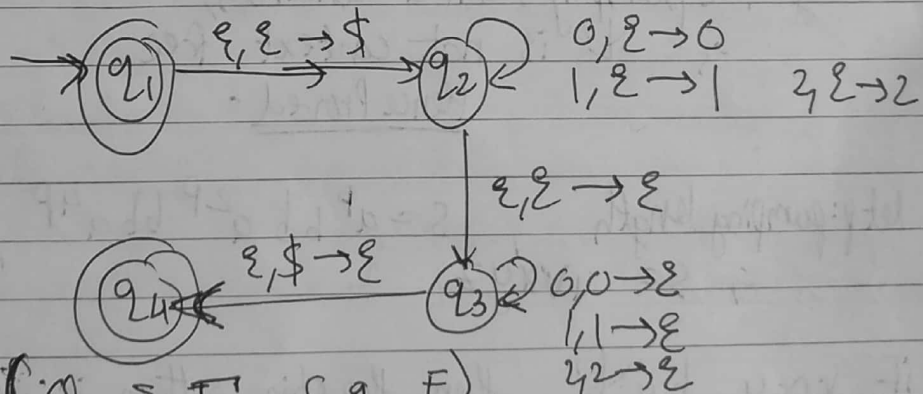 q1 ε,ε→$ q2 0,ε→0
1,ε→1 2,ε→2
ε,ε→ε
q4 ε,$→ε q3 0,0→ε
1,1→ε
2,2→ε